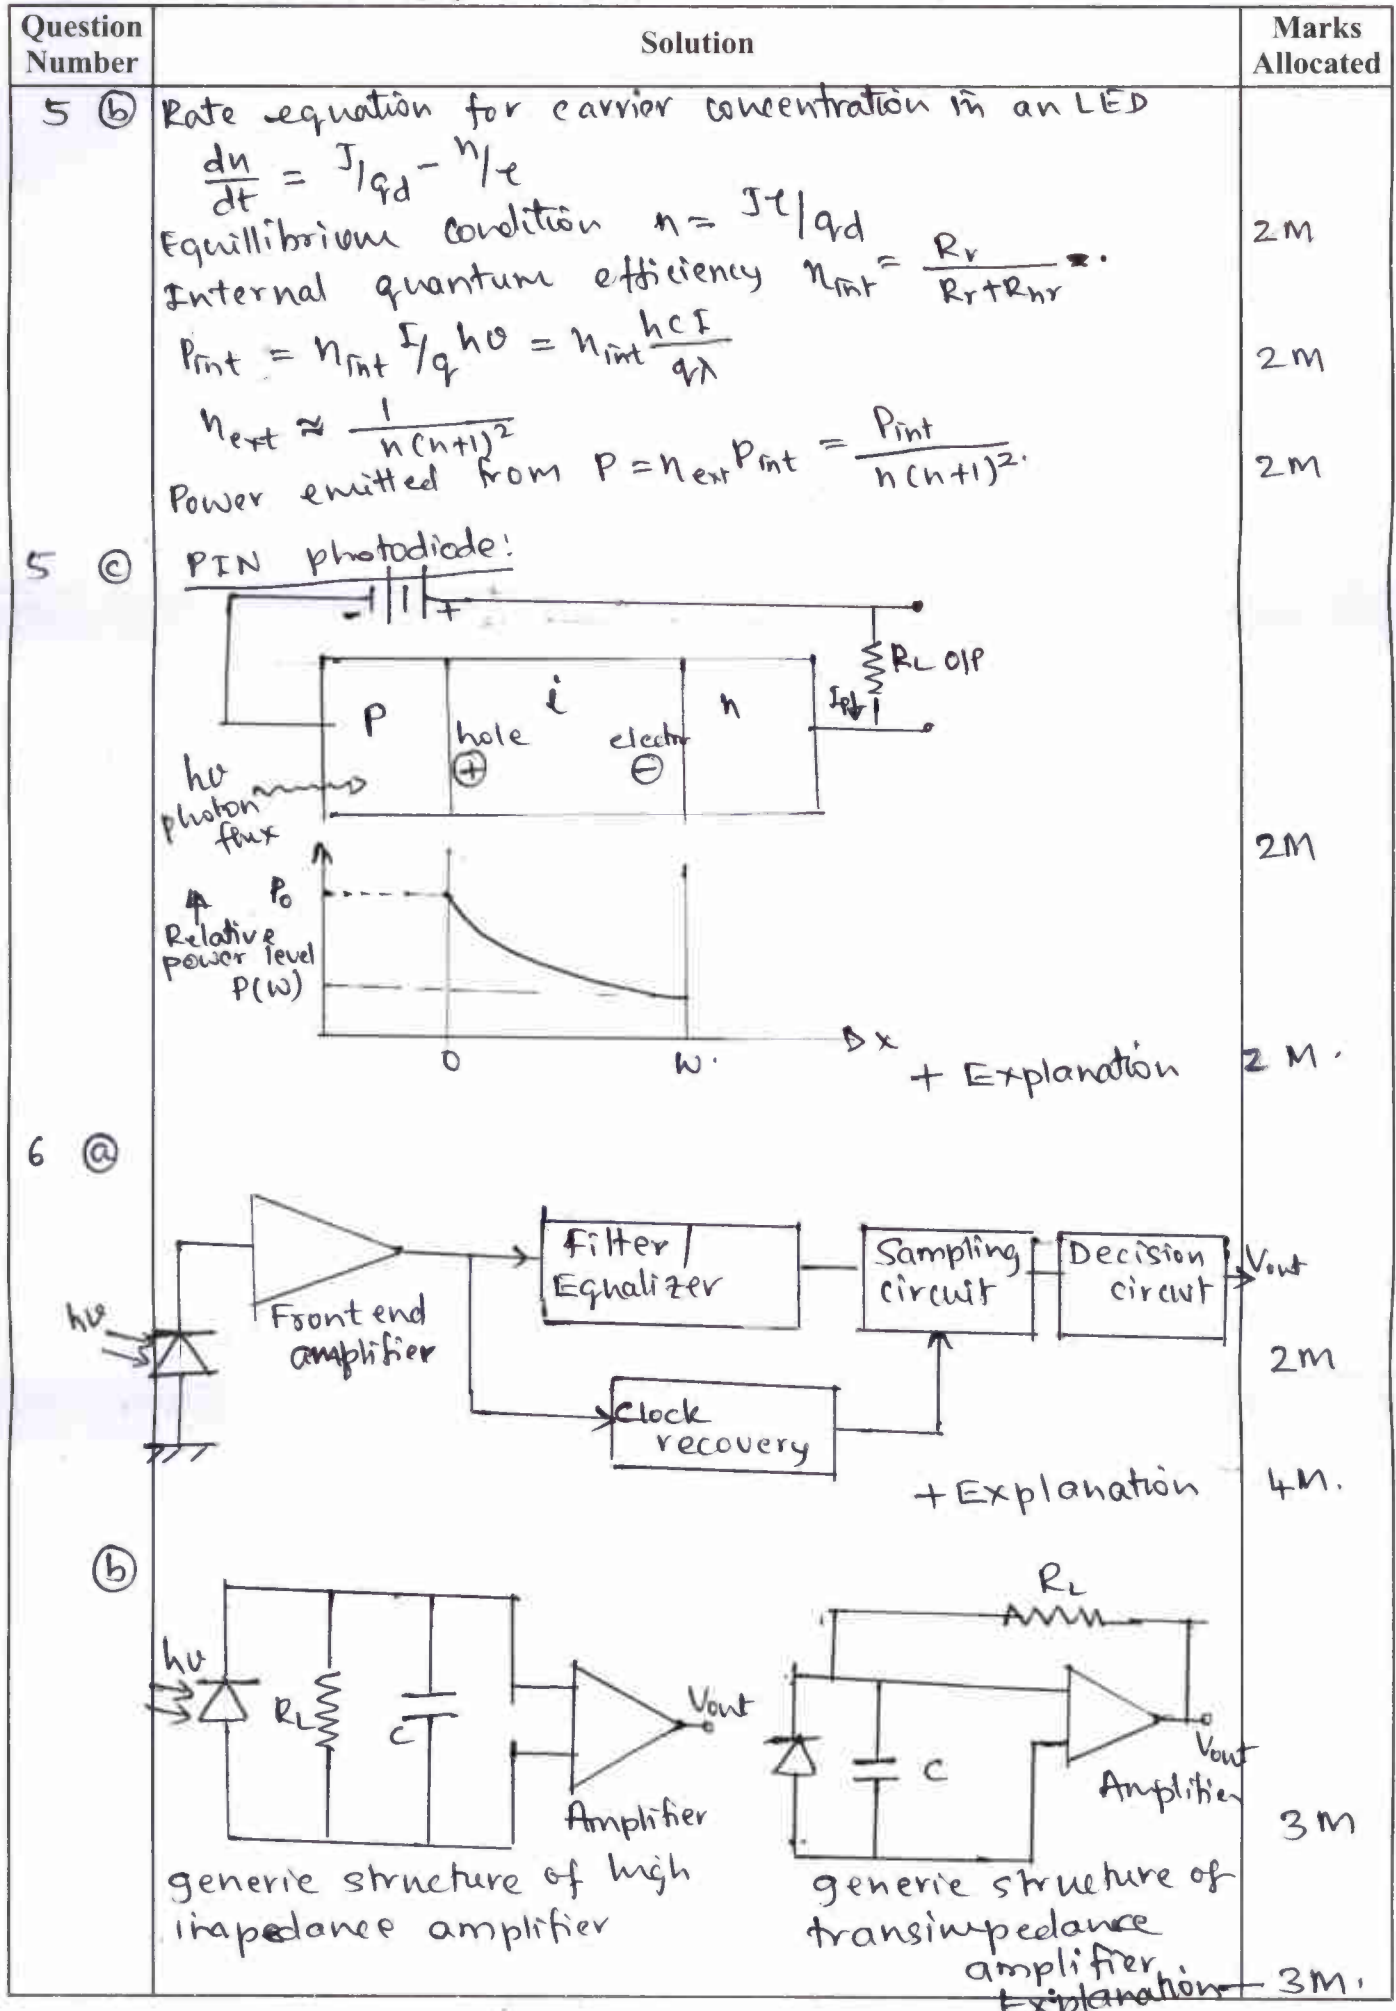 Question Number | Solution | Marks Allocated
5 (b) Rate equation for carrier concentration in an LED
dn/dt = J/qd - n/τ
Equillibrium condition n = Jτ/qd 2M
Internal quantum efficiency ηint = Rr/(Rr+Rnr).
Pint = ηint I/q hυ = ηint hcI/qλ 2M
ηext ≈ 1/n(n+1)²
Power emitted from P = ηext Pint = Pint/n(n+1)². 2M
5 (c) PIN photodiode:
- +
RL O/P
P i n
Ip
hole electr
+ -
hυ
photon
flux
2M
P0
Relative
power level
P(W)
0 W. x
+ Explanation 2 M.
6 (a)
Filter/ Sampling Decision Vout
Equalizer circuit circuit
hυ
Front end
amplifier
2M
Clock
recovery
+ Explanation 4M.
(b)
RL
hυ
RL C Vout
C Vout
Amplifier Amplifier
3M
generic structure of high
impedance amplifier
generic structure of
transimpedance
amplifier
Explanation - 3M.